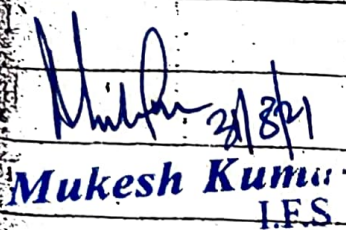 31/8/21
Mukesh Kumar
I.F.S